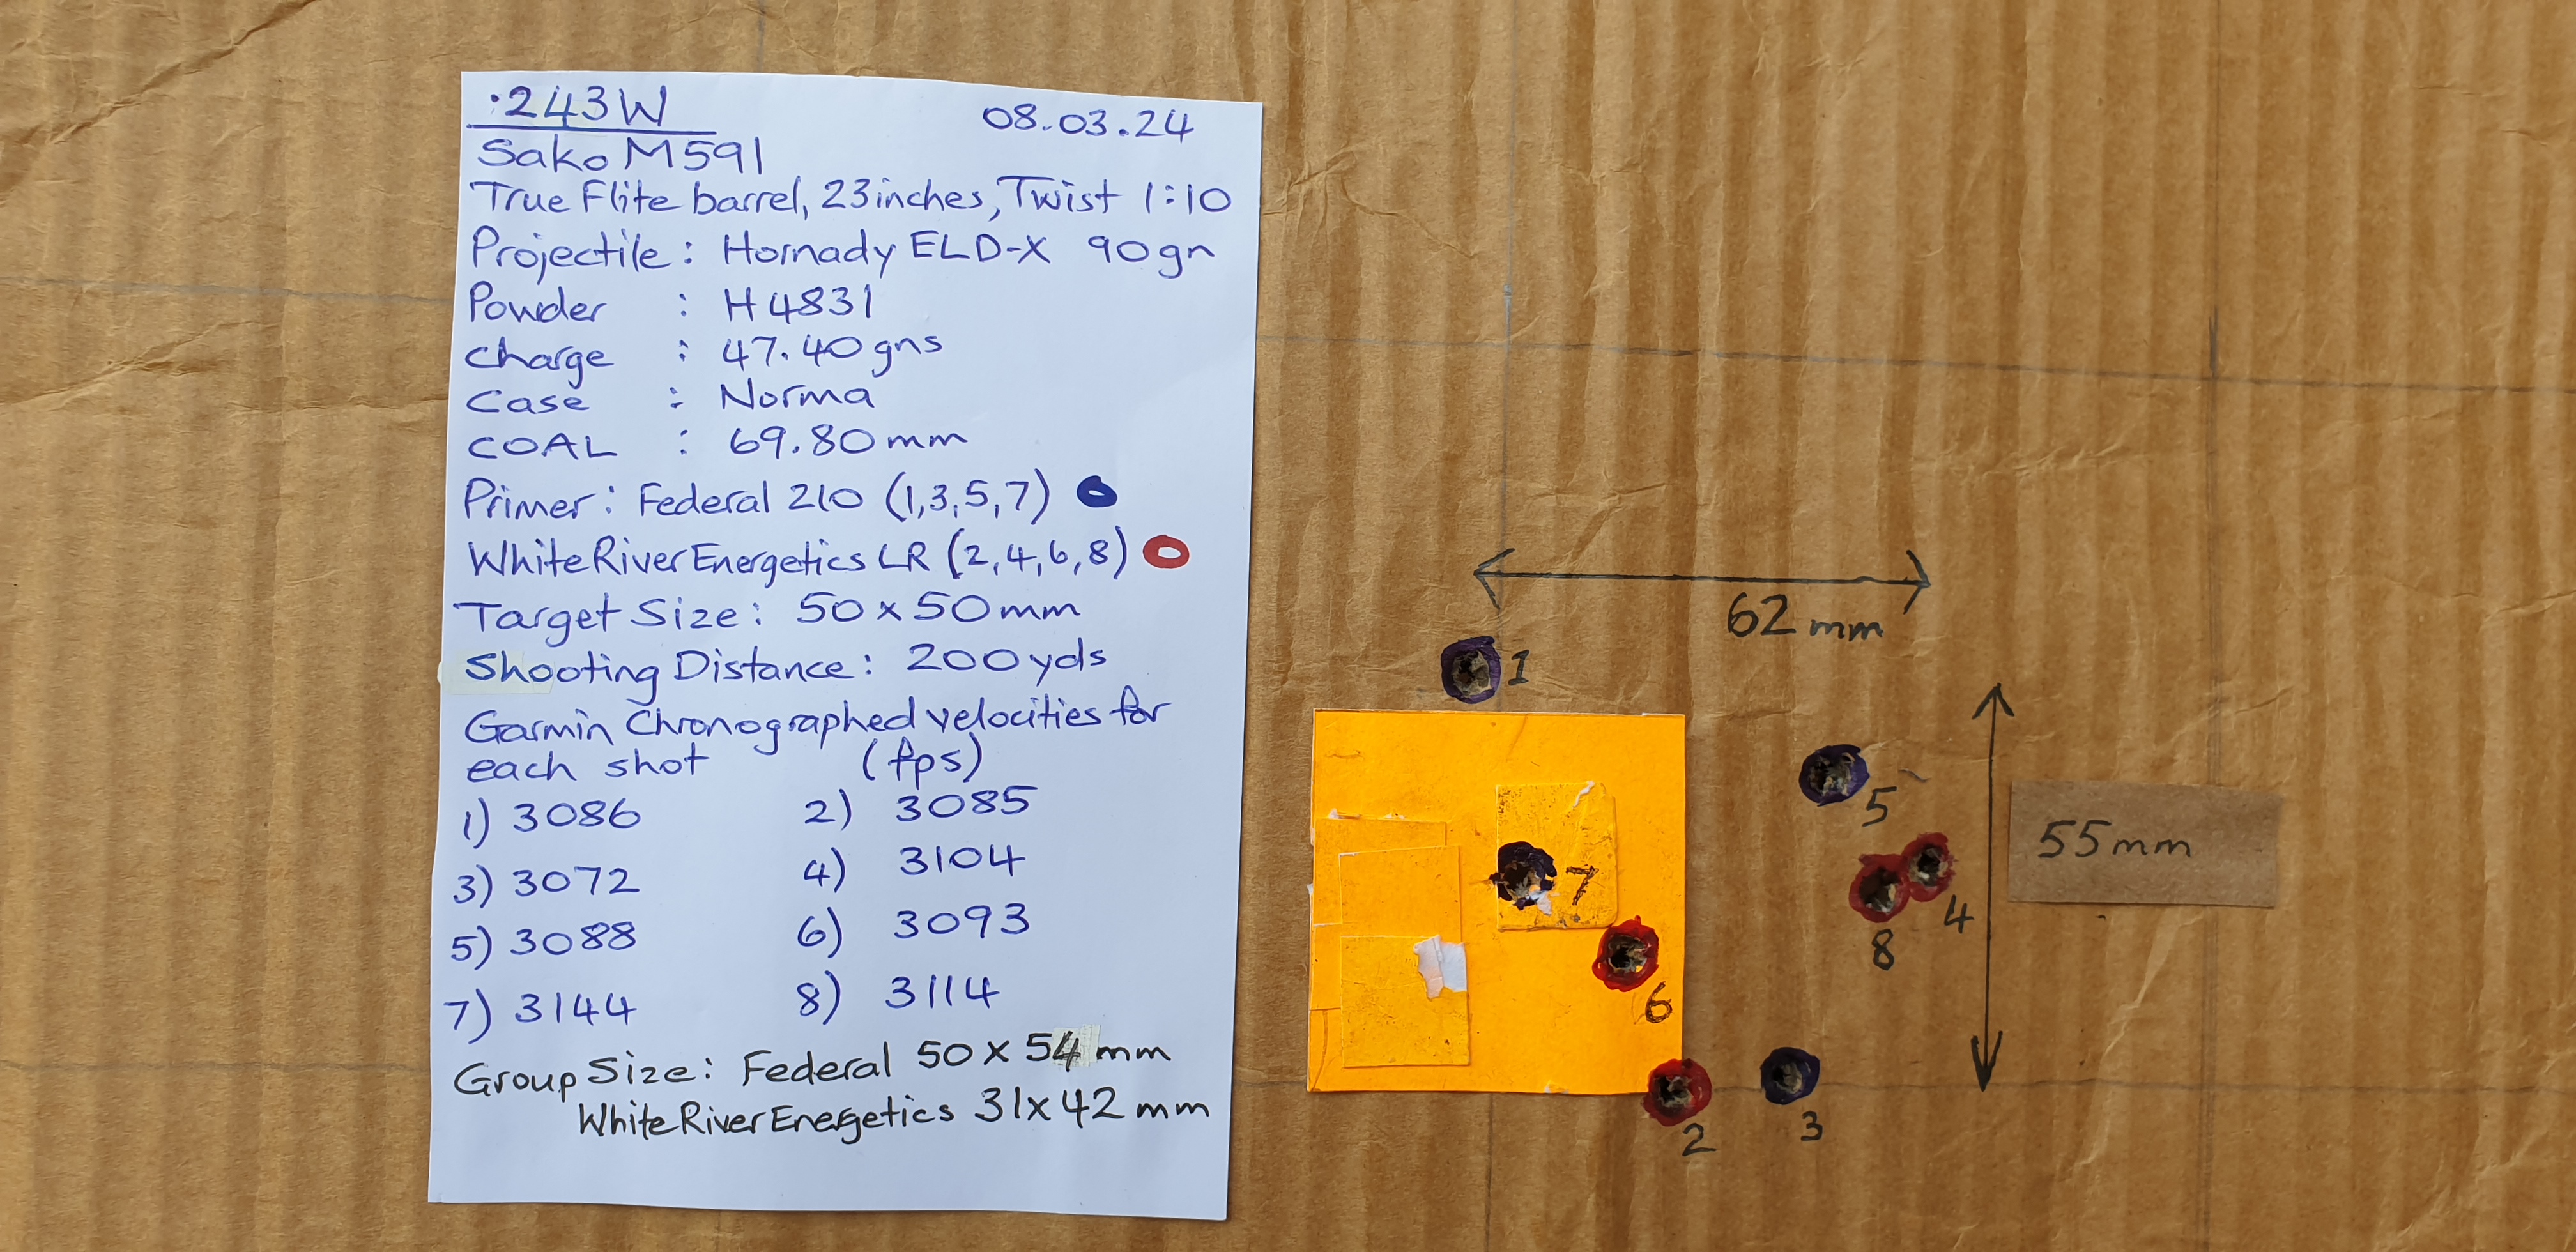 .243W 08.03.24
Sako M591
True Flite barrel, 23inches, Twist 1:10
Projectile: Hornady ELD-X 90gn
Powder : H4831
Charge : 47.40gns
Case : Norma
COAL : 69.80mm
Primer: Federal 210 (1,3,5,7)
White River Energetics LR (2,4,6,8)
Target Size: 50x50mm
Shooting Distance: 200yds
Garmin Chronographed velocities for
each shot (fps)
1) 3086 2) 3085
3) 3072 4) 3104
5) 3088 6) 3093
7) 3144 8) 3114
Group Size: Federal 50x54mm
White River Energetics 31x42mm
62mm
1
5
55mm
7
4
8
6
3
2